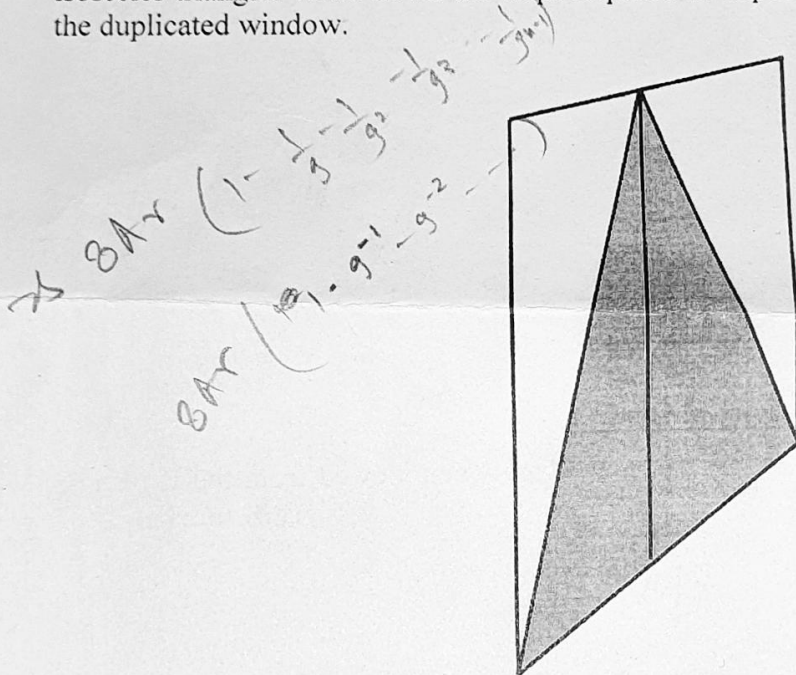 the duplicated window.
8Ar (1- 1/9 - 1/9² - 1/9³ - - 1/9ⁿ⁻¹)
8Ar ( 1 - 9⁻¹ - 9⁻² - - - )